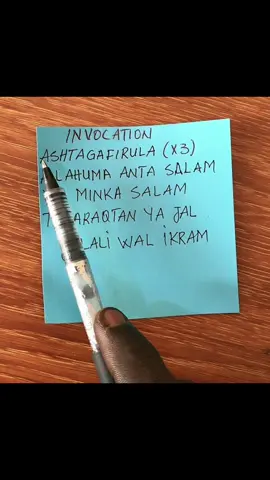 INVOCATION
ASHTAGAFIRULA (X3)
LAHUMA ANTA SALAM
MINKA SALAM
YA JAL
LALI WAL IKRAM